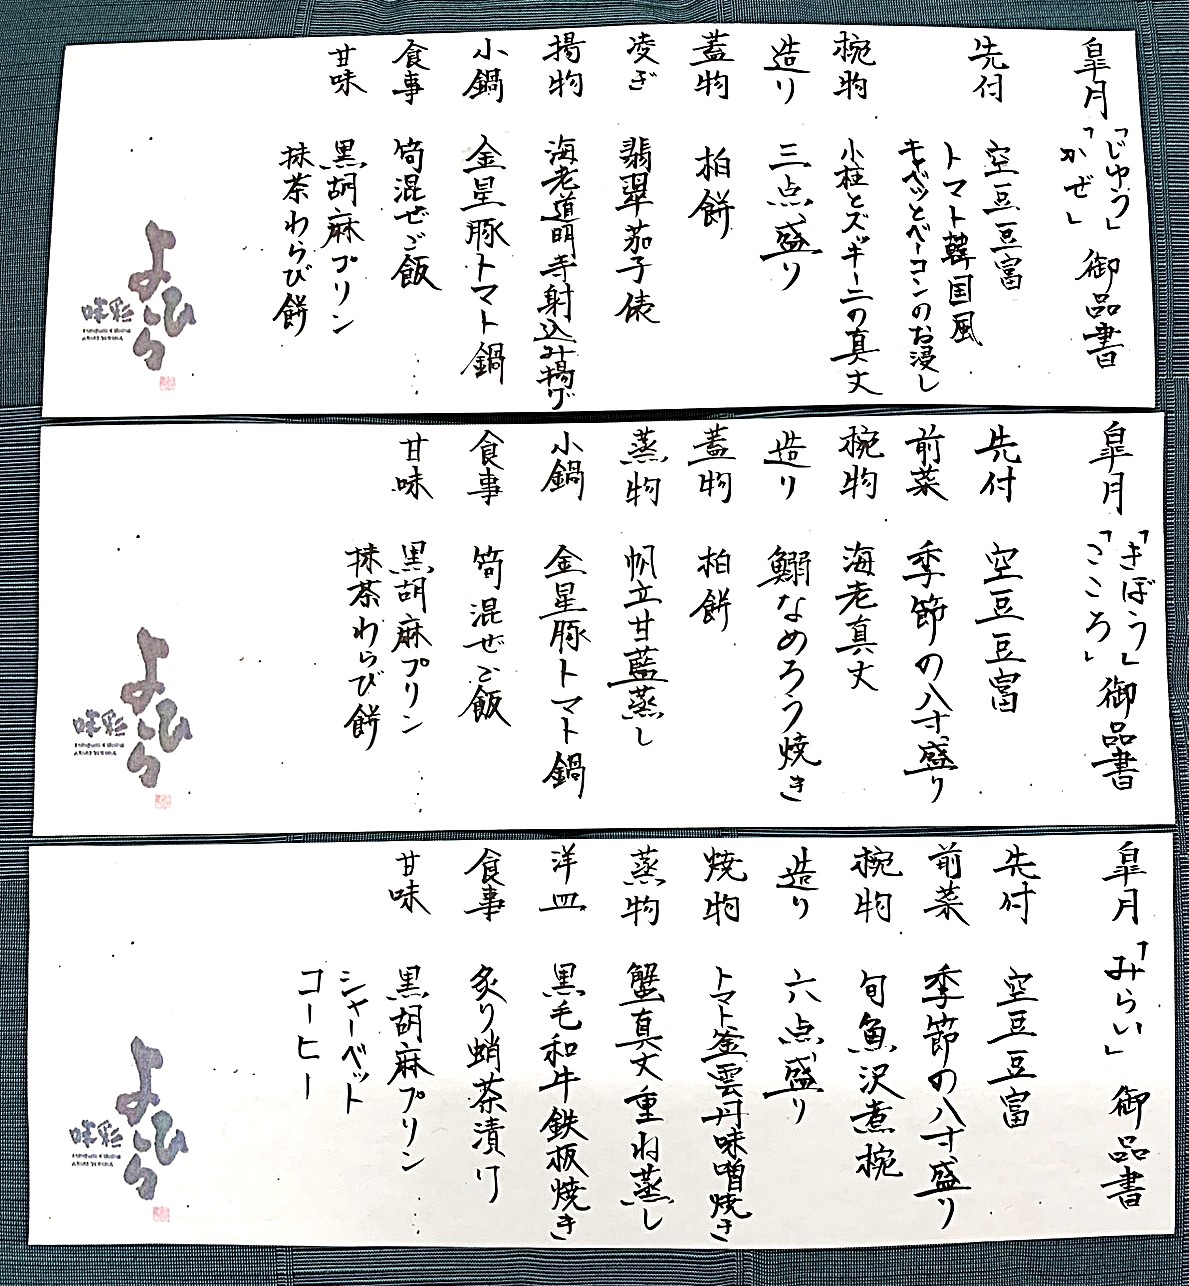 皐月「じゆう」「かぜ」御品書
先付 空豆豆富
トマト韓国風
キャベツとベーコンのお浸し
椀物 小柱とズッキーニの真丈
造り 三点盛り
蓋物 柏餅
凌ぎ 翡翠茄子俵
揚物 海老道明寺射込み揚げ
小鍋 金星豚トマト鍋
食事 筍混ぜご飯
甘味 黒胡麻プリン
抹茶わらび餅
味彩 よひら
皐月「きぼう」「こころ」御品書
先付 空豆豆富
前菜 季節の八寸盛り
椀物 海老真丈
造り 鰯なめろう焼き
蓋物 柏餅
蒸物 帆立甘藍蒸し
小鍋 金星豚トマト鍋
食事 筍混ぜご飯
甘味 黒胡麻プリン
抹茶わらび餅
味彩 よひら
皐月「みらい」御品書
先付 空豆豆富
前菜 季節の八寸盛り
椀物 旬魚沢煮椀
造り 六点盛り
焼物 トマト釜雲丹味噌焼き
蒸物 蟹真丈重ね蒸し
洋皿 黒毛和牛鉄板焼き
食事 炙り蛸茶漬け
甘味 黒胡麻プリン
シャーベット
コーヒー
味彩 よひら